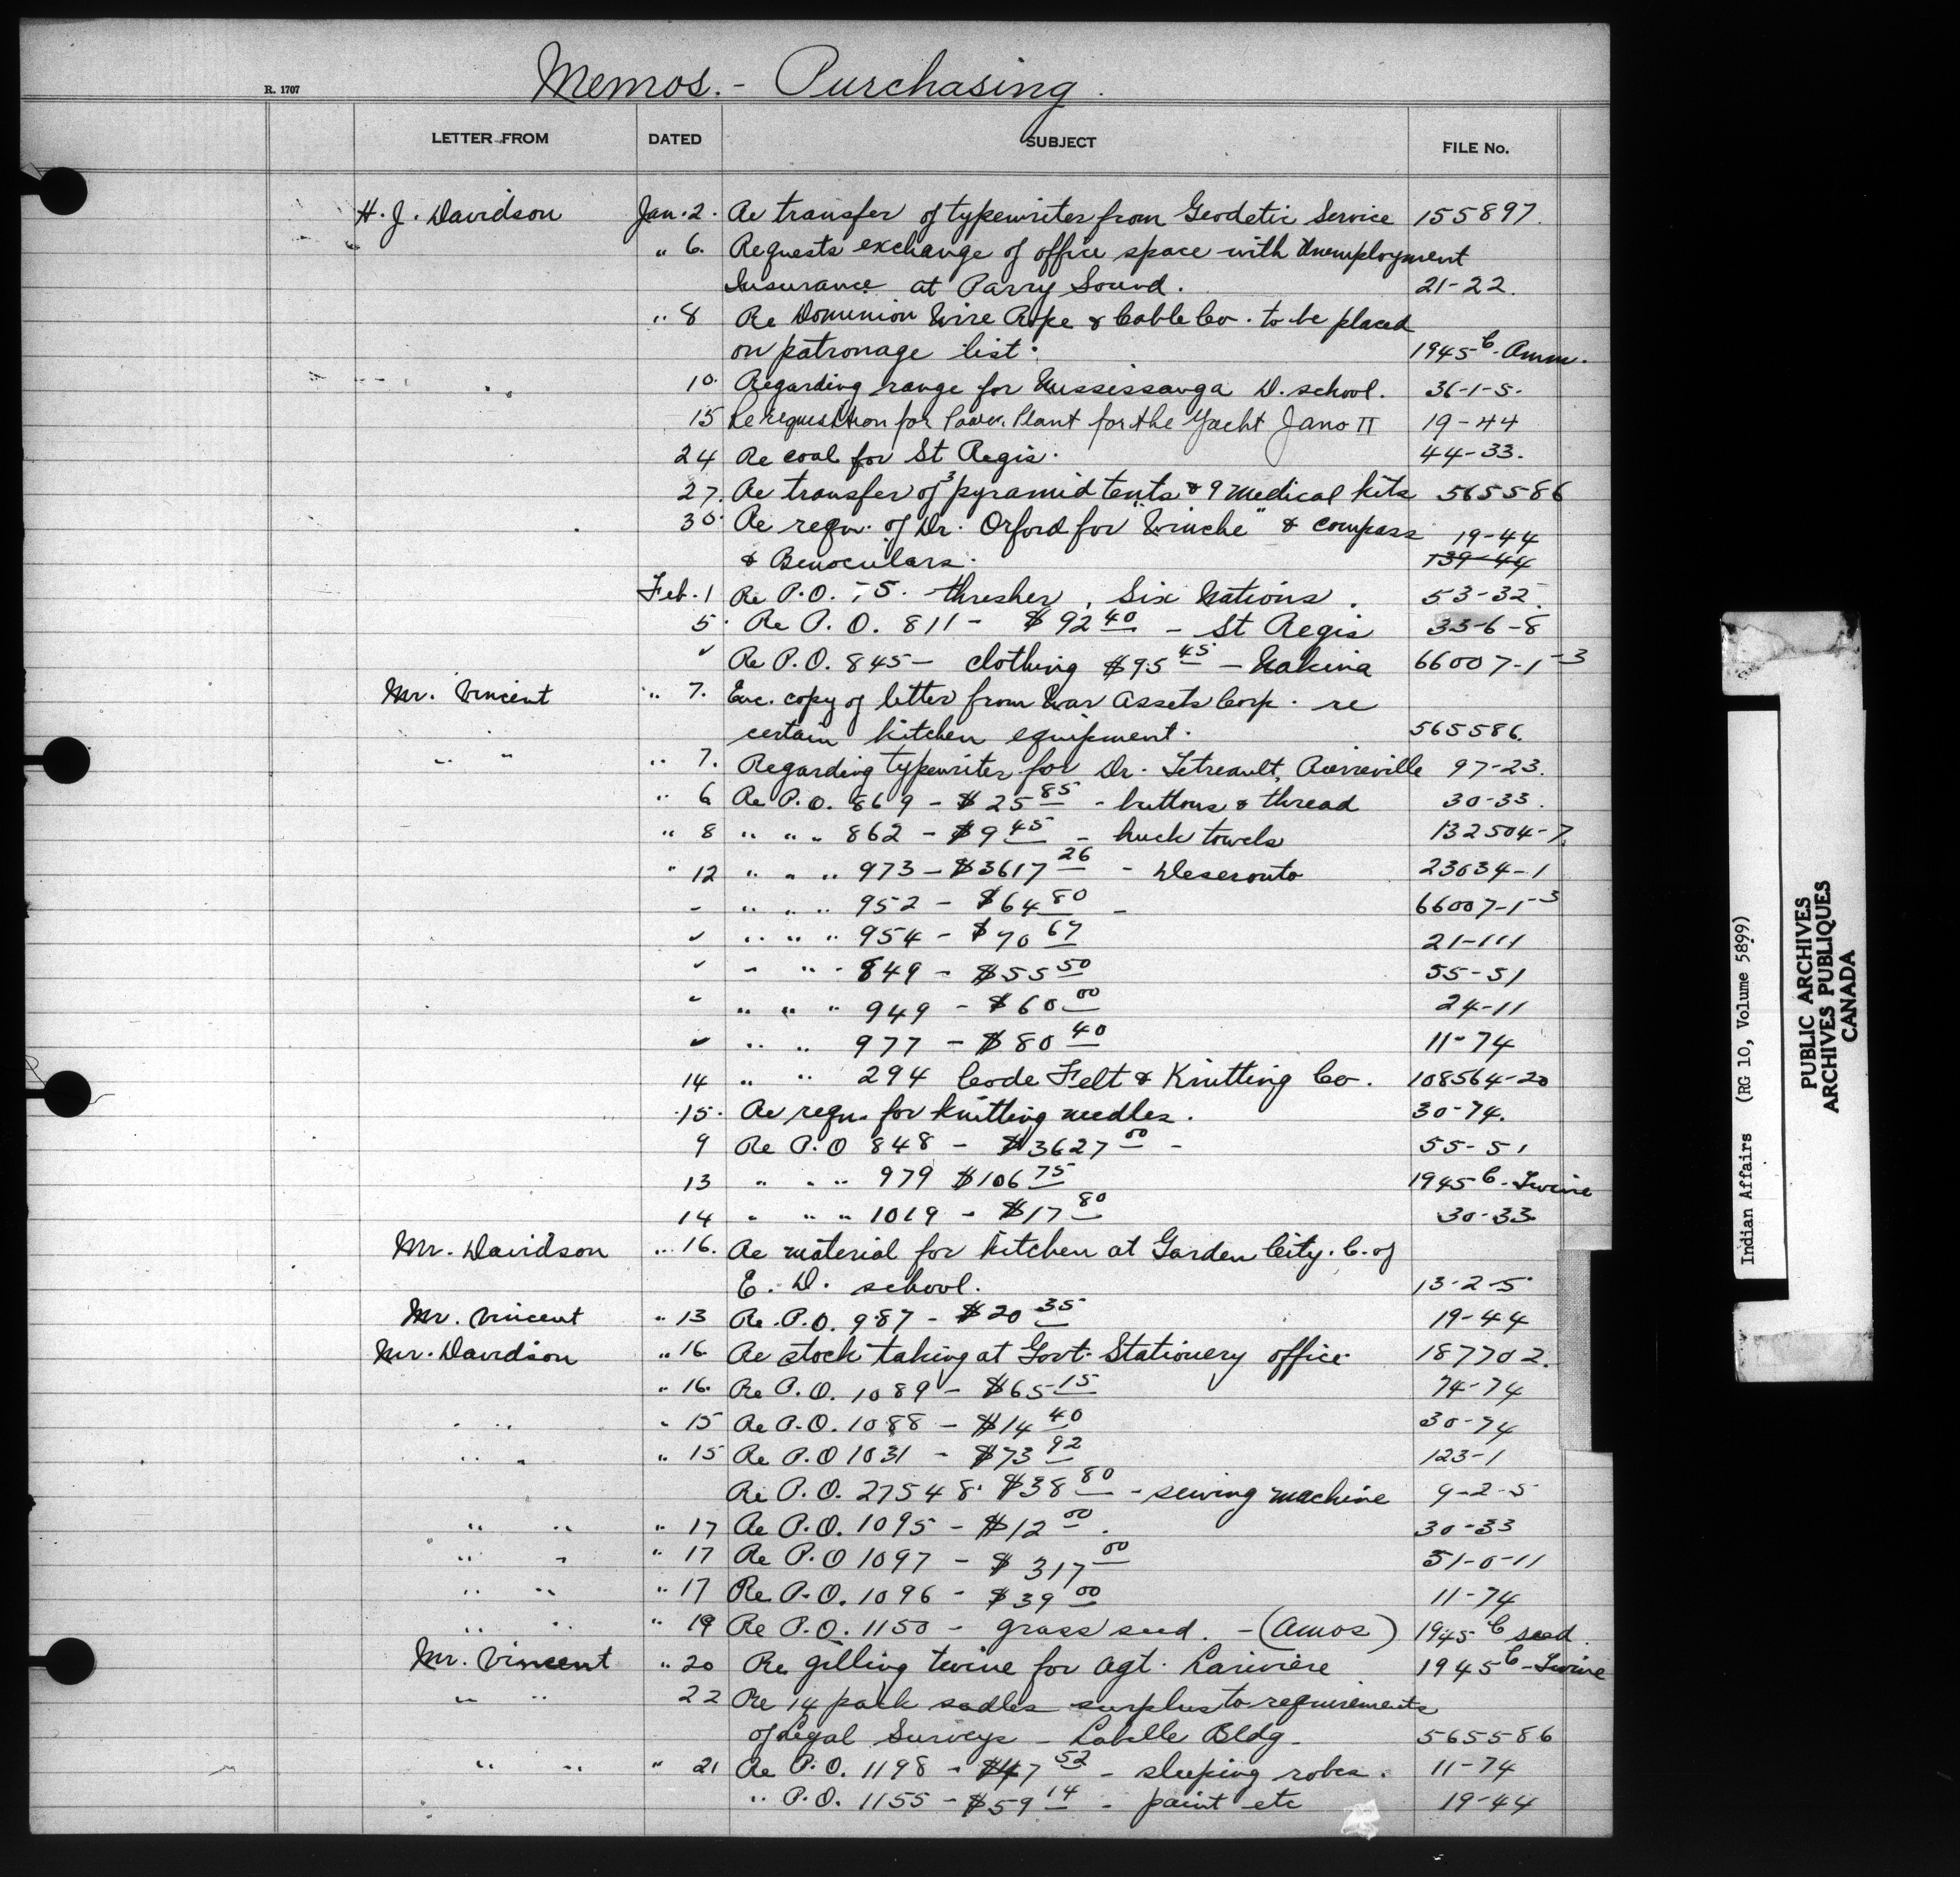 Memos. - Purchasing.
R. 1707
LETTER FROM DATED SUBJECT FILE No.
H. J. Davidson Jan. 2. Re transfer of typewriter from Geodetic Service 155897.
" 6. Requests exchange of office space with Unemployment
Insurance at Parry Sound. 21-22.
" 8 Re Dominion Wire Rope & Cable Co. to be placed
on patronage list. 1945 C. Amm.
" 10. Regarding range for Mississauga D. school. 36-1-5.
15 Re requisition for Power Plant for the Yacht Jano II 19-44
24 Re coal for St Regis. 44-33.
27. Re transfer of 3 pyramid tents & 9 medical kits 565586
30. Re reqn. of Dr. Orford for "Winche" & compass 19-44
& Benoculars. 139-44
Feb. 1 Re P.O. 75. thresher, Six Nations. 53-32.
5. Re P.O. 811 - $92 40 - St Regis 33-6-8
" Re P.O. 845 - clothing $95 45 - Nakina 66007-1-3
Mr. Vincent " 7. Enc. copy of letter from War Assets Corp. re
certain kitchen equipment. 565586.
" " " 7. Regarding typewriter for Dr. Tetreault, Pierreville 97-23.
" 6 Re P.O. 869 - $25 85 - buttons & thread 30-33.
" 8 " " " 862 - $9 45 - huck towels 132504-7.
" 12 " " " 973 - $3617 26 - Deseronto 23034-1
" " " " 952 - $64 80 - 66007-1-3
" " " " 954 - $70 67 21-111
" " " " 849 - $55 50 55-51
" " " " 949 - $60 00 24-11
" " " 977 - $80 40 11-74
14 " " 294 Code Felt & Knitting Co. 108564-20
15. Re reqn. for knitting needles. 30-74.
9 Re P.O 848 - $3627 00 - 55-51
13 " " " 979 $106 75 1945 C. Twine
14 " " " 1019 - $17 80 30-33
Mr. Davidson " 16. Re material for kitchen at Garden City. C. of
E. D. school. 13-2-5
Mr. Vincent " 13 Re. P.O. 987 - $20 35 19-44
Mr. Davidson " 16. Re stock taking at Govt. Stationery office 187702.
" 16. Re P.O. 1089 - $65 15 74-74
" " " 15 Re P.O. 1088 - $14 40 30-74
" " " 15 Re P.O 1031 - $73 92 123-1
Re P.O. 27548. $38 80 - sewing machine 9-2-5
" " " 17 Re P.O. 1095 - $12 00. 30-33
" " " 17 Re P.O 1097 - $317 00 51-0-11
" " " 17 Re P.O. 1096 - $39 00 11-74
" " " 19 Re P.O. 1150 - grass seed. - (Amos) 1945 C seed.
Mr. Vincent " 20 Re gilling twine for Agt. Lariviere 1945 C - Twine
" " 22 Re 14 pack sadles surplus to requirements
of Legal Surveys - Labelle Bldg. 565586
" " " 21 Re P.O. 1198 - $47 52 - sleeping robes. 11-74
" P.O. 1155 - $59 14 - paint etc 19-44
Indian Affairs (RG 10, Volume 5899)
PUBLIC ARCHIVES
ARCHIVES PUBLIQUES
CANADA